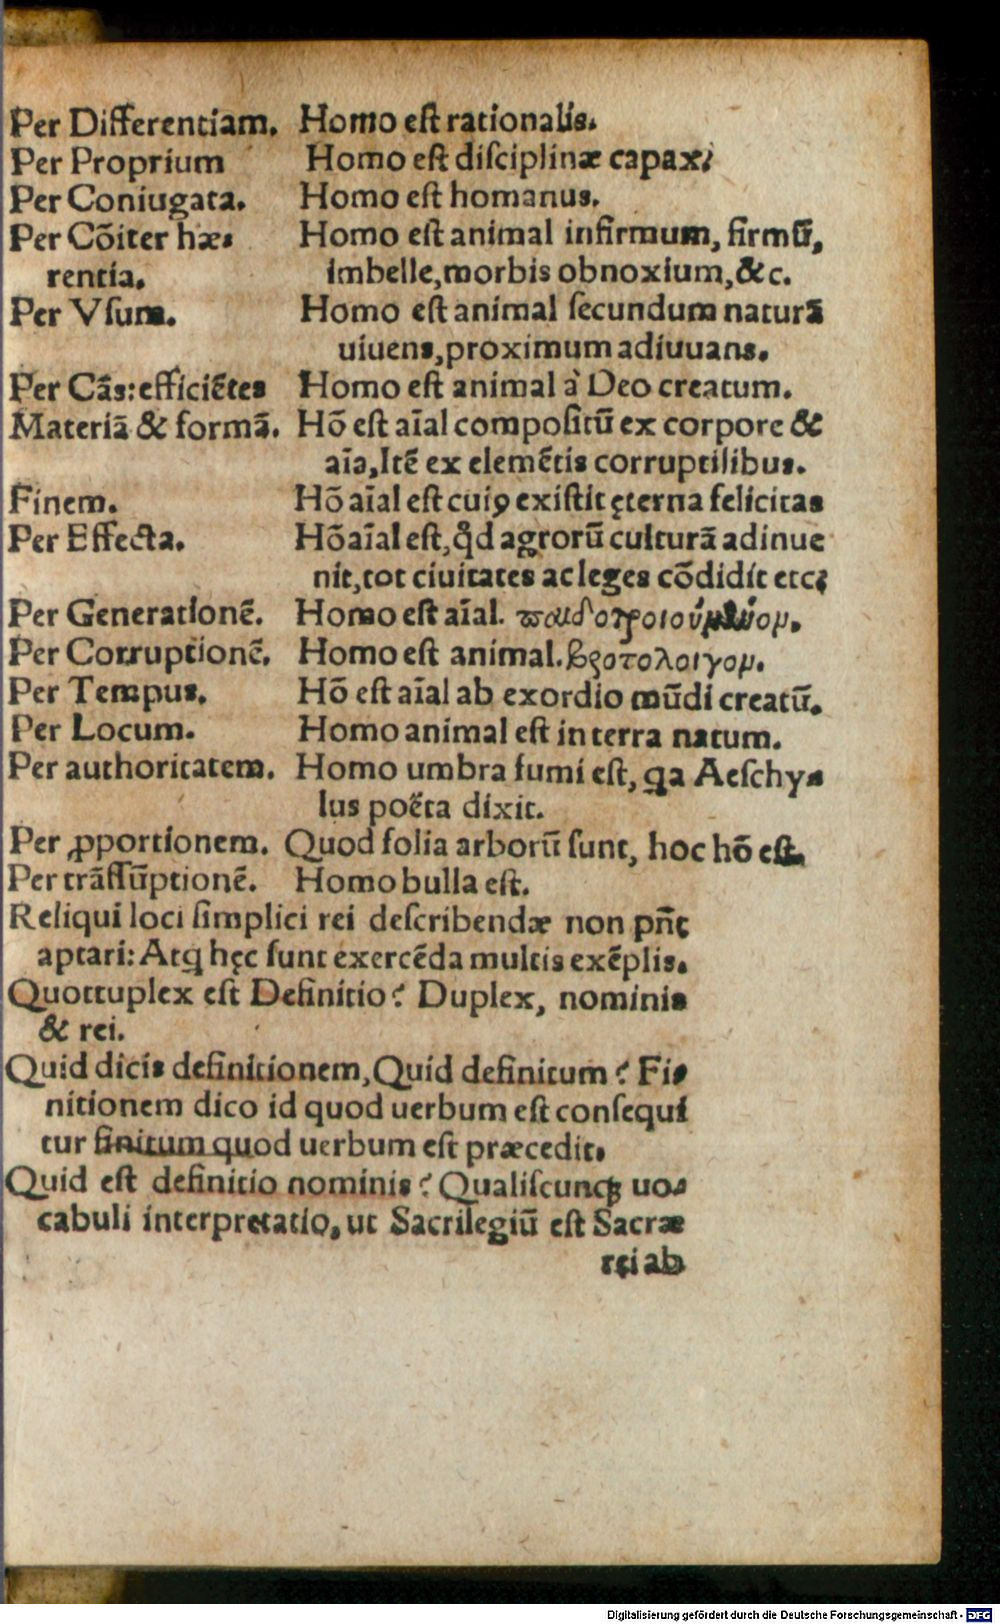 Per Differentiam. Homo eſt rationalis.
Per Proprium Homo eſt diſciplinæ capax;
Per Coniugata. Homo eſt homanus.
Per Cōiter hæ- Homo eſt animal infirmum, firmū,
rentia. imbelle, morbis obnoxium, &c.
Per Vſum. Homo eſt animal ſecundum naturā
uiuens, proximum adiuuans.
Per Cās: efficiētes Homo eſt animal à Deo creatum.
Materiā & formā. Hō eſt aīal compoſitū ex corpore &
aīa, Itē ex elemētis corruptilibus.
Finem. Hō aīal eſt cuiꝰ exiſtit ęterna felicitas
Per Effecta. Hō aīal eſt, qd̄ agrorū culturā adinue
nit, tot ciuitates ac leges cōdidit etc;
Per Generationē. Homo eſt aīal.
Per Corruptionē. Homo eſt animal. βροτολοιγομ.
Per Tempus. Hō eſt aīal ab exordio mūdi creatū.
Per Locum. Homo animal eſt in terra natum.
Per authoritatem. Homo umbra fumi eſt, qa Aeſchy-
lus poëta dixit.
Per ꝓportionem. Quod folia arborū ſunt, hoc hō eſt.
Per trāſſūptionē. Homo bulla eſt.
Reliqui loci ſimplici rei deſcribendæ non pn̄t
aptari: Atq; hęc ſunt exercēda multis exēplis.
Quottuplex eſt Definitio? Duplex, nominis
& rei.
Quid dicis definitionem, Quid definitum? Fi-
nitionem dico id quod uerbum eſt conſequi
tur finitum quod uerbum eſt præcedit.
Quid eſt definitio nominis? Qualiſcunq; uo-
cabuli interpretatio, ut Sacrilegiū eſt Sacræ
rei ab
Digitalisierung gefördert durch die Deutsche Forschungsgemeinschaft - DFG